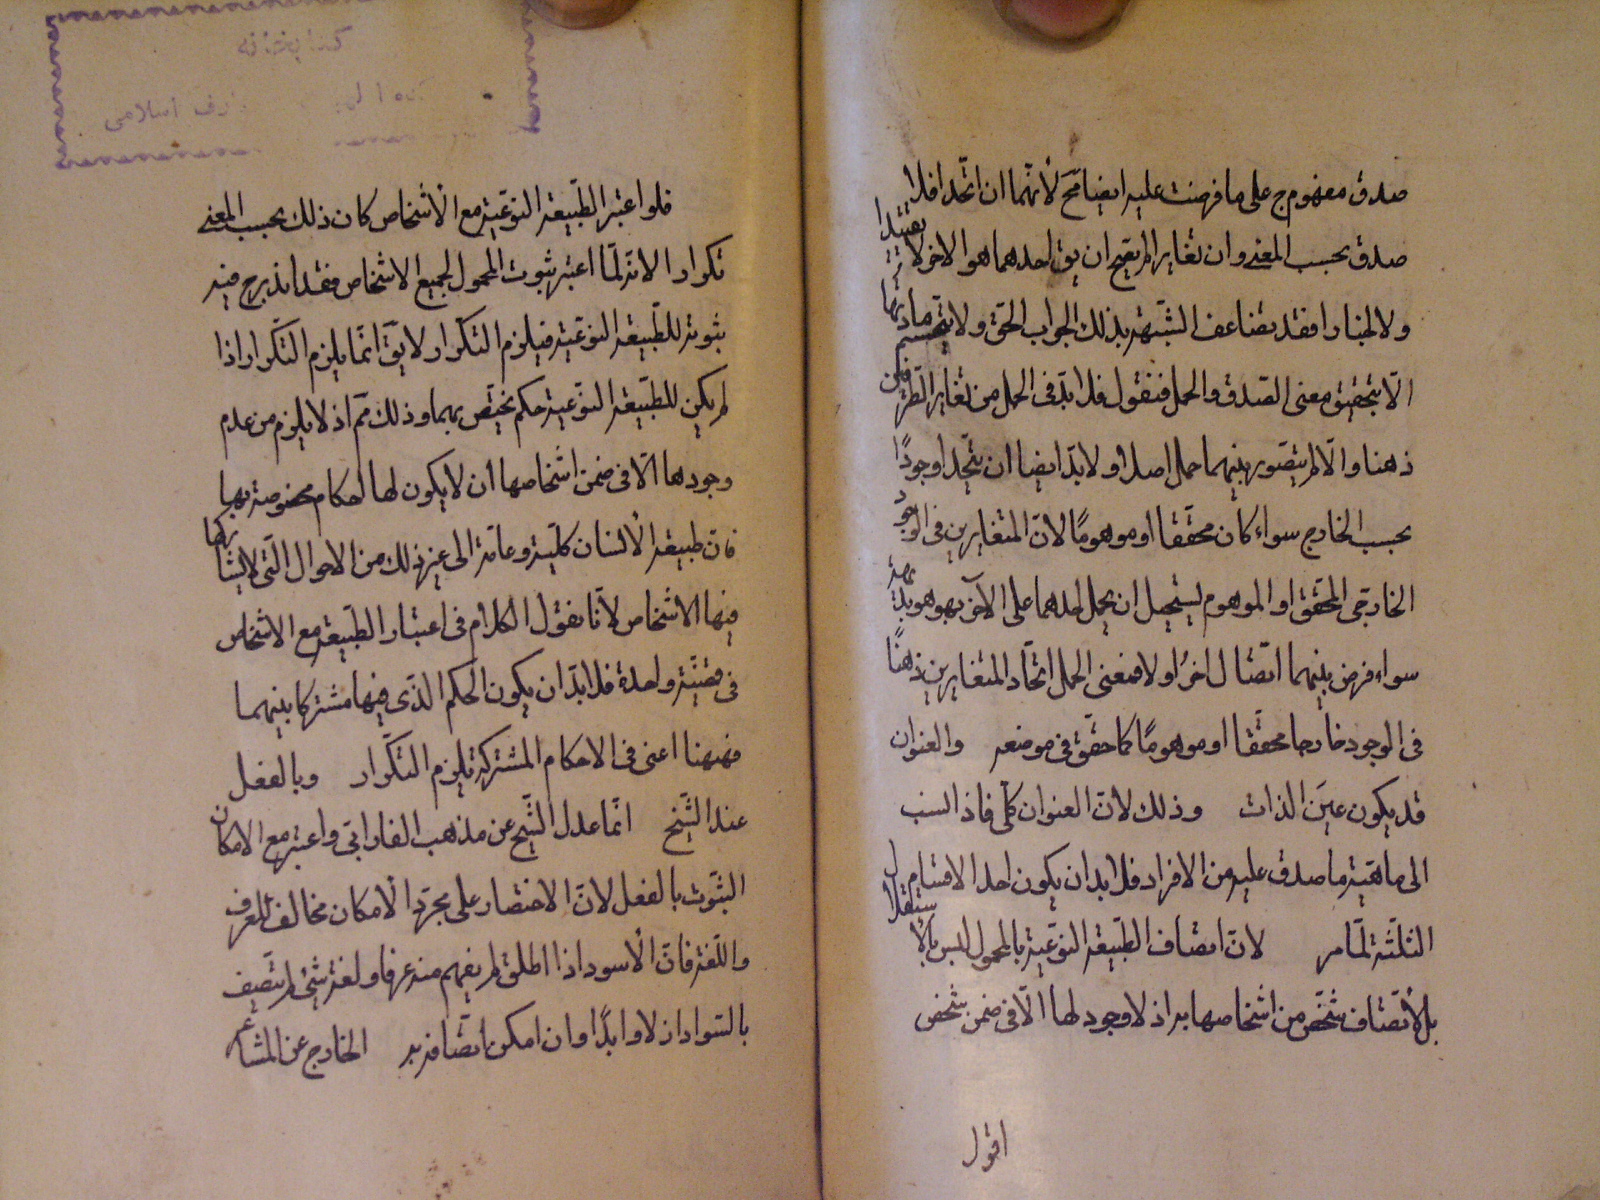 صدق مفهوم ج على ما فرضت عليه ايضا مح لأنهما ان اتحدا فلا
صدق بحسب المعنى وان تغايرا لم يصح ان يق احدهما هو الاخر لا تقييدا
ولا اخبارا فقد تضاعف الشبهة بذلك الجواب الحق ولا ينحسم مادتها
الا بتحقيق معنى الصدق والحمل فنقول فلا بد فى الحمل من تغاير الطرفين
ذهنا والا لم يتصور بينهما حمل اصلا ولا بد ايضا ان يتحدا وجودًا
بحسب الخارج سواء كان محققا او موهومًا لان المتغايرين فى الوجود
الخارجى المحقق او الموهوم يستحيل ان يحمل احدهما على الآخر بهو هو بديهة
سواء فرض بينهما اتصال اخر او لا فمعنى الحمل اتحاد المتغايرين ذهنًا
فى الوجود خارجا محققا او موهومًا كما حقق فى موضعه والعنوان
قد يكون عين الذات وذلك لان العنوان كلى فاذا نسب
الى ماهية ما صدق عليه من الافراد فلا بد ان يكون احد الاقسام
الثلثة لما مر لان اتصاف الطبيعة النوعية بالمحمول ليس بالاستقلال
بل لأتصاف شخص من اشخاصها به اذ لا وجود لها الا فى ضمن شخص
اقول
كتابخانه
اسلامى
فلو اعتبر الطبيعة النوعية مع الأشخاص كان ذلك بحسب المعنى
تكرارا لانه لما اعتبر ثبوت المحمول لجميع الاشخاص فقد اندرج فيه
ثبوته للطبيعة النوعية فيلزم التكرار لا يق انما يلزم التكرار اذا
لم يكن للطبيعة النوعية حكم يختص بهما وذلك مم اذ لا يلزم من عدم
وجودها الا فى ضمن اشخاصها ان لا يكون لها احكام مخصوصة بها
فان طبيعة الأنسان كلية وعامة الى غير ذلك من الاحوال التى لا يشاركها
فيها الاشخاص لأنا نقول الكلام فى اعتبار الطبيعة مع الاشخاص
فى قضية واحدة فلا بد ان يكون الحكم الذى فيها مشتركا بينهما
فههنا اعنى فى الاحكام المشتركة يلزم التكرار وبالفعل
عند الشيخ انما عدل الشيخ عن مذهب الفارابى واعتبر مع الامكان
الثبوت بالفعل لان الاختصار على مجرد الأمكان مخالف للعرف
واللغة فان الأسود اذا اطلق لم يفهم منه عرفا ولغة شئ لم يتصف
بالسواد ازلا وابدًا وان امكن اتصافه به الخارج عن المشاعر